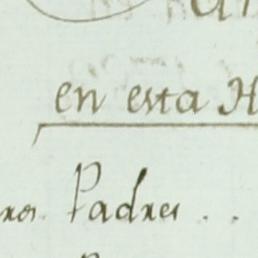 en esta H
Padres . .